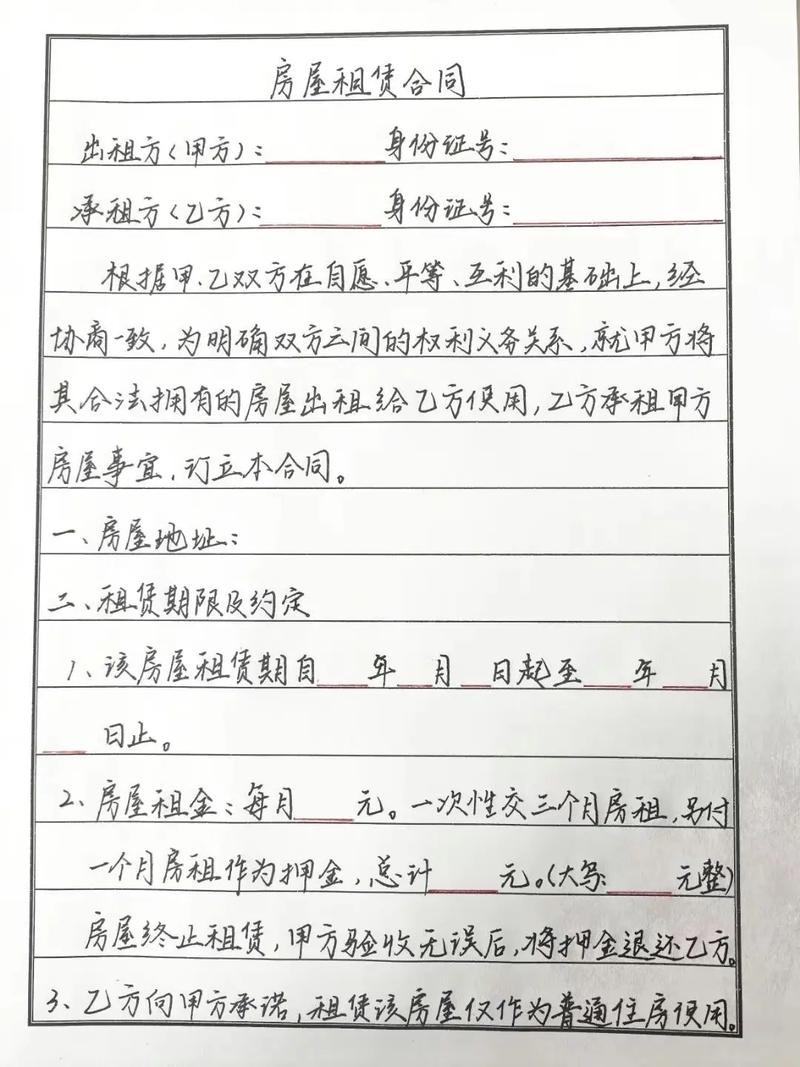 房屋租赁合同
出租方(甲方):______ 身份证号:____________
承租方(乙方):______ 身份证号:____________
根据甲、乙双方在自愿、平等、互利的基础上,经
协商一致,为明确双方之间的权利义务关系,就甲方将
其合法拥有的房屋出租给乙方使用,乙方承租甲方
房屋事宜,订立本合同。
一、房屋地址:
二、租赁期限及约定
1、该房屋租赁期自___年__月__日起至___年___月
___日止。
2、房屋租金:每月____元。一次性交三个月房租,另付
一个月房租作为押金,总计____元。(大写:____元整)
房屋终止租赁,甲方验收无误后,将押金退还乙方。
3、乙方向甲方承诺,租赁该房屋仅作为普通住房使用。